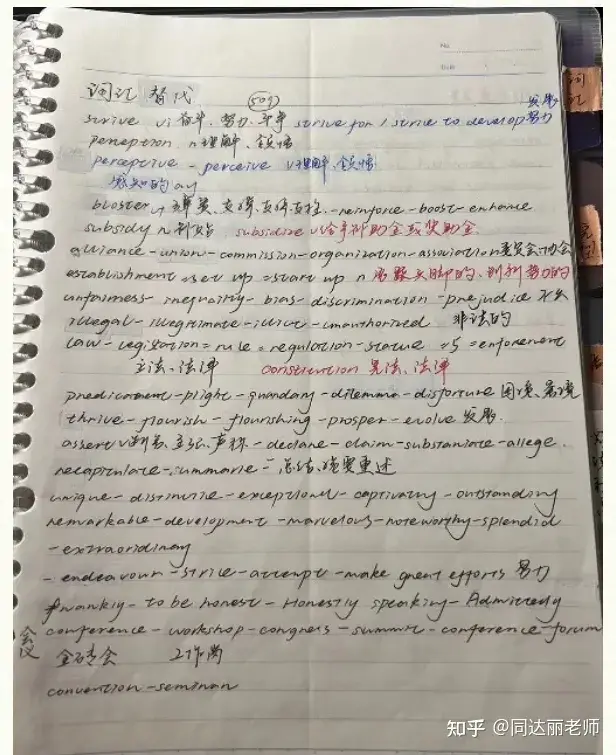 No
Date
词汇 替代 509
strive vi 奋斗、努力、斗争 strive for / strive to develop 努力发展
perception n 理解、领悟
perceptive - perceive v 理解、领悟
感知的 adj
bloster v 支撑、支持 - reinforce - boost - enhance
subsidy n 补贴 subsidize v 给予补助金或奖助金
alliance - union - commission - organization - association 委员会、协会
establishment = set up = start up n
unfairness - inequality - bias - discrimination - prejudice 不公
illegal - illegitimate - illicit - unauthorized 非法的
law - legistation = rule = regulation - statue =
立法、法律 constitution 宪法、法律
predicament - plight - quandary - dilemma - 困境、窘境
thrive - flourish - flourishing - prosper - evolve 发展
assert v 断言、主张、声称 - declare - claim - substaniate - allege.
recapitulate - summarie = 总结、摘要重述
unique - distinctive - exceptional - captivating - outstanding
remarkable - development - marvelous - noteworthy - splendid
- extraoridinary
- endeavour - strive - attempt - make great efforts 努力
frankly - to be honest - Honestly speaking - Admittedly
会议 conference - workshop - congress - summit - conference - forum
金砖会 工作商
convention - seminar
词汇
知乎 @同达丽老师